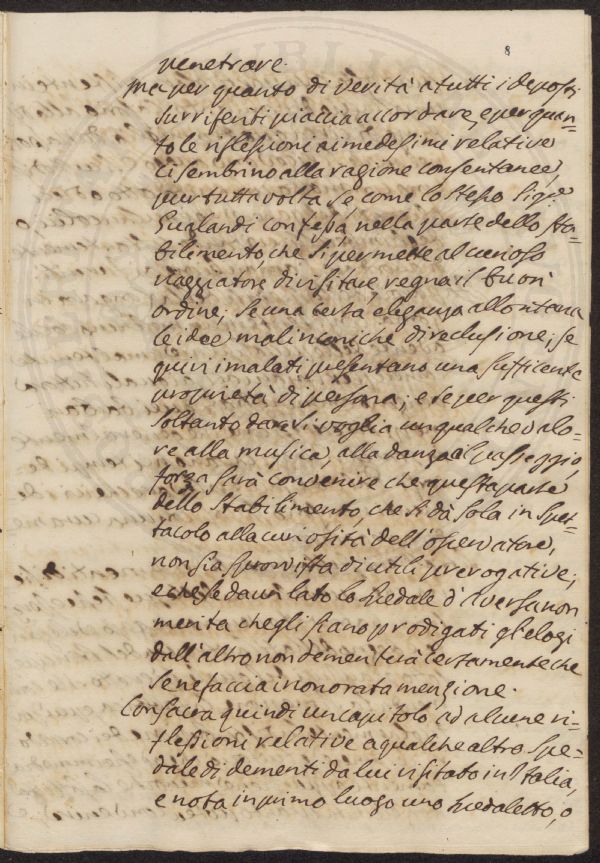 8
penetrare.
ma per quanto di verità a tutti i deposti
surriferiti piaccia accordare, e per quan=
to le riflessioni ai medesimi relative
ci sembrino alla ragione consentanee,
pur tuttavolta se, come lo stesso Sigre
Gualandi confessa, nella parte dello sta=
bilimento, che si permette al curioso
viaggiatore di visitare, regna il buon
ordine; se una certa eleganza allontana
le idee malinconiche di reclusione; se
quivi i malati presentano una sufficente
proprietà di persona; e se per questi
soltanto dare si voglia un qualche valo=
re alla musica, alla danza, al passeggio,
forza sarà convenire che questa parte
dello Stabilimento, che si dà sola in spet=
tacolo alla curiosità dell'osservatore,
non sia sprovvista di utili prerogative;
e che se da un lato lo Spedale d'Aversa non
merita che gli siano prodigati gli elogi
dall'altro non demeriterà certamente che
se ne faccia inonorata menzione.
Consacra quindi un capitolo ad alcune ri=
flessioni relative a qualche altro Spe=
dale di dementi da lui visitato in Italia,
e nota in primo luogo uno Spedaletto, o